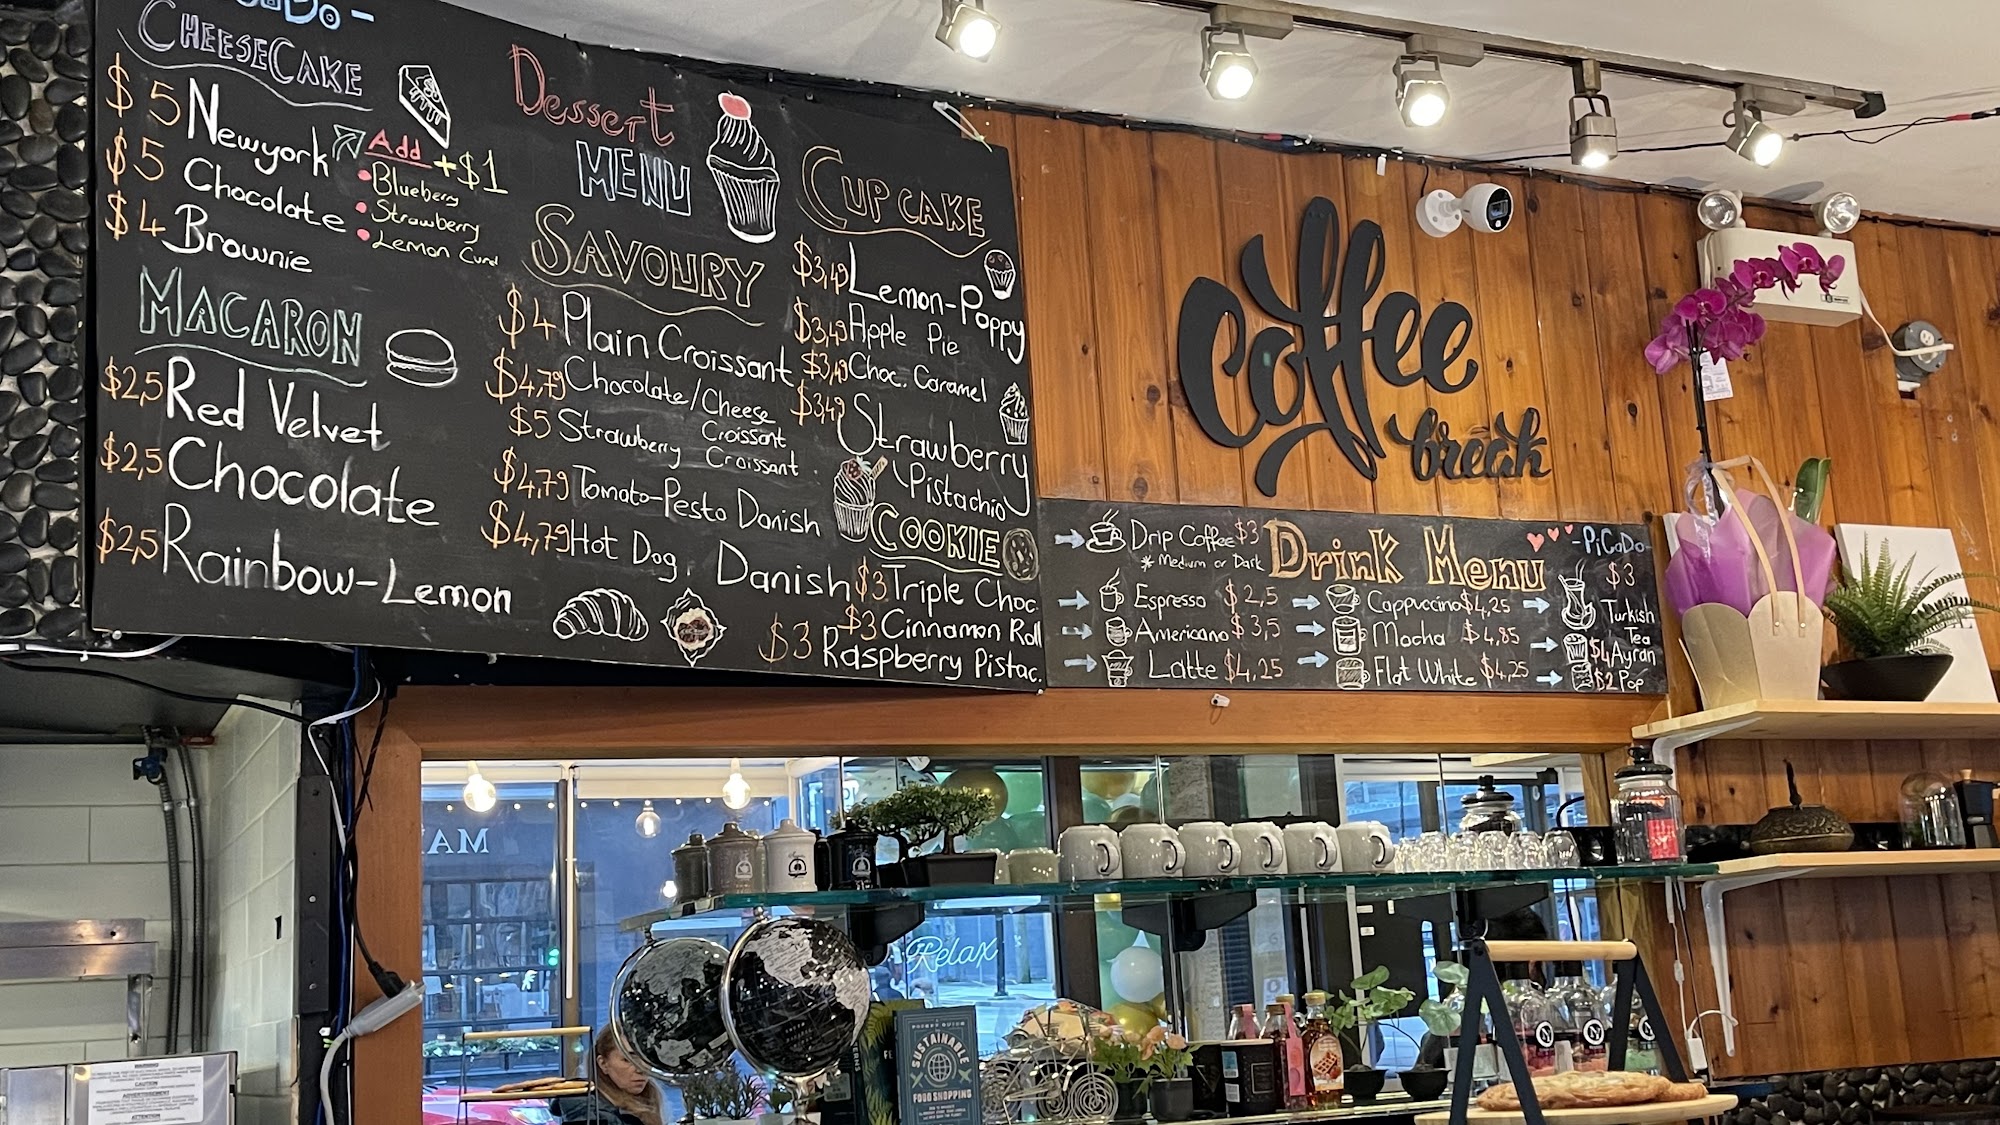 CHEESECAKE
$5 Newyork
$5 Chocolate
$4 Brownie
Add +$1
Blueberry
Strawberry
Lemon Curd
MACARON
$2,5 Red Velvet
$2,5 Chocolate
$2,5 Rainbow-Lemon
Dessert
MENU
SAVOURY
$4 Plain Croissant
$4,79 Chocolate/Cheese
Croissant
$5 Strawberry Croissant
$4,79 Tomato-Pesto Danish
$4,79 Hot Dog Danish
CUPCAKE
$3,49 Lemon-Poppy
$3,49 Apple Pie
$3,49 Choc. Caramel
$3,49 Strawberry
Pistachio
COOKIE
$3 Triple Choc.
$3 Cinnamon Roll
$3 Raspberry Pistac.
coffee
break
Drink Menu
-PiCoDo-
Drip Coffee $3
* Medium or Dark
Espresso $2,5
Americano $3,5
Latte $4,25
Cappuccino $4,25
Mocha $4,85
Flat White $4,25
$3
Turkish
Tea
$4 Ayran
$2 Pop
Relax
POCKET GUIDE
SUSTAINABLE
FOOD SHOPPING
WARNING
CAUTION
ATTENTION